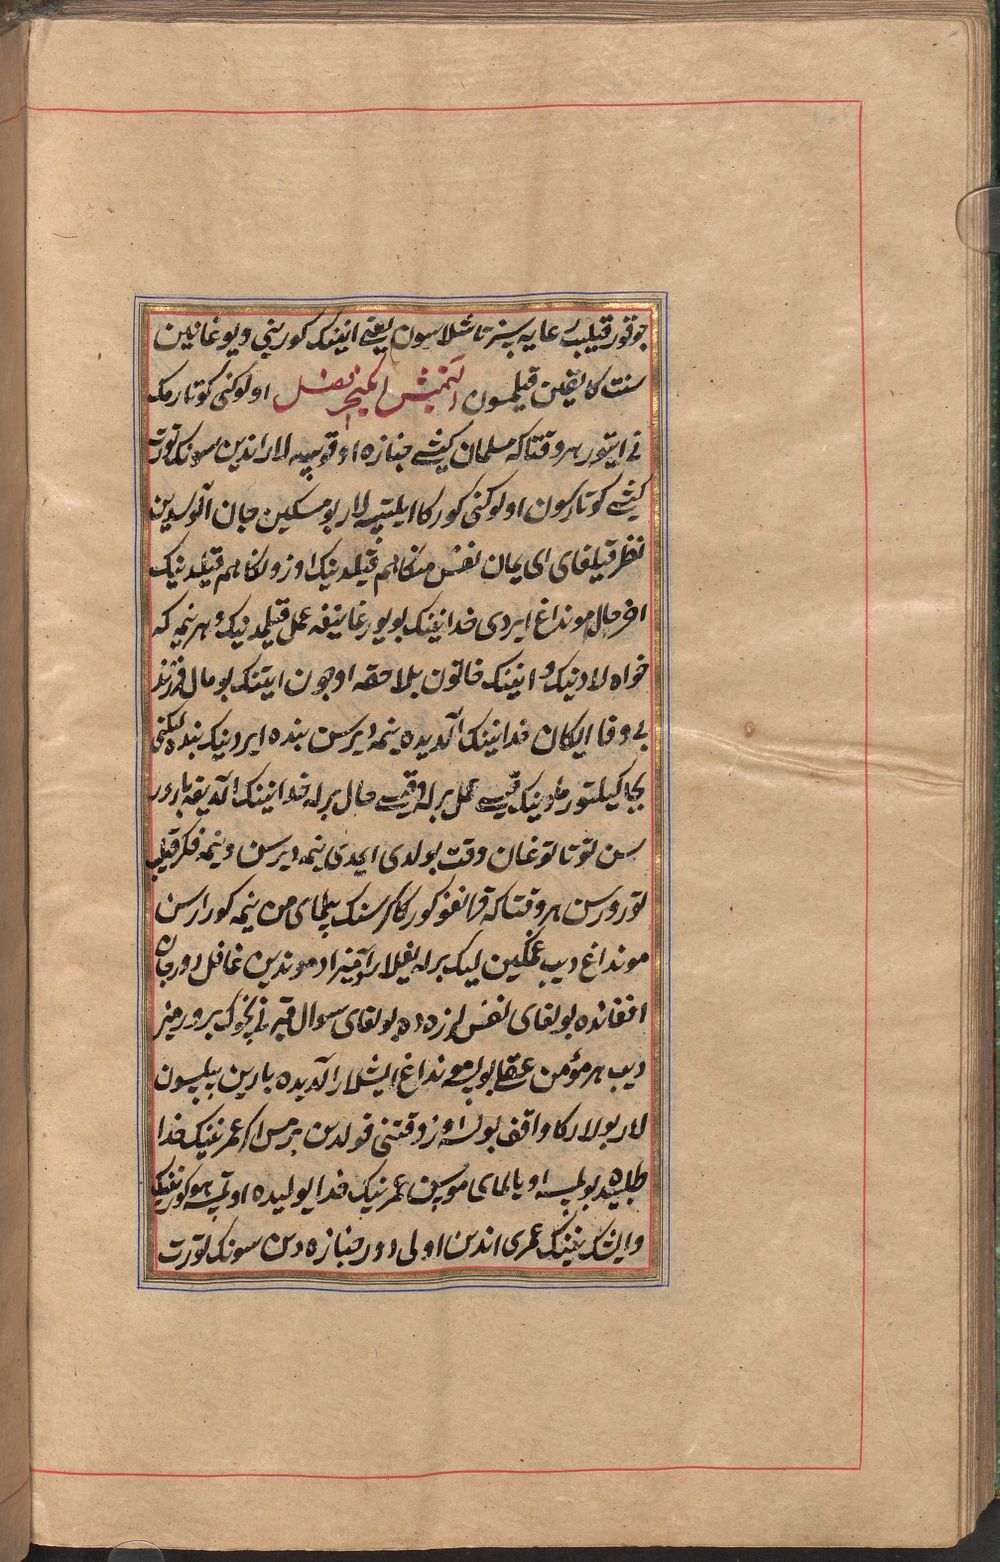 جوقور قیلیب رعایه سیز تاشلاسون یعنی انینک کورینی دیوغانین
سنت کا یقین قیلسون التمیش ایکینجی فصل اولوکنی کوتارمک
نی ایتور هر وقتاکه مسلمان کیشی جنازه اوقوسه لار اندین سونک تورت
کیشی کوتارسون اولوکنی کورکا ایلتسه لار بو مسکین جان آتولسدین
نظر قیلغای ای یمان نفس منکا هم قیلدینک اوزونکا هم قیلدینک
اخر حال مونداغ ایردی خدانینک بویورغانیغه عمل قیلمدینک و هر نیمه که
خواه لادینک و انینک خاتون بلاحقه اوچون ایتنک بو مال فرزند
بی وفا ایکان خدانینک آلدیده نیمه دیرسن بنده ایردینک بنده لیکنی
بجا کیلتورمادینک قیسی عمل برله و قیسی حال برله خدانینک آلدیغه بارور
سن توتاتوغان وقت بولدی ایمدی نیمه دیرسن و نیمه فکر قیلیب
تورورسن هر وقتاکه قرانغو کورکا کرسنک بیلمای من نیمه کورارسن
مونداغ دیب غمکین لیک برله یغلار آدمیزاد موندین غافل دور جان
افغانده بولغای نفس لرزه ده بولغای سوال قبر نی نچوک بیرورمیز
دیب هر مؤمن عقلی بولسه مونداغ ایشلار آلدیده بارین بیلسون
لار بولارکا واقف بولسه اوز وقتنی قولدین برمس اکر عمرنینک خدا
طلبیده بولسه اویالمای موسن عمرنینک خدا یولیده اوتسه هو کورنینک
وایشک نینک عمری اندین اولی دور جنازه دین سونک تورت